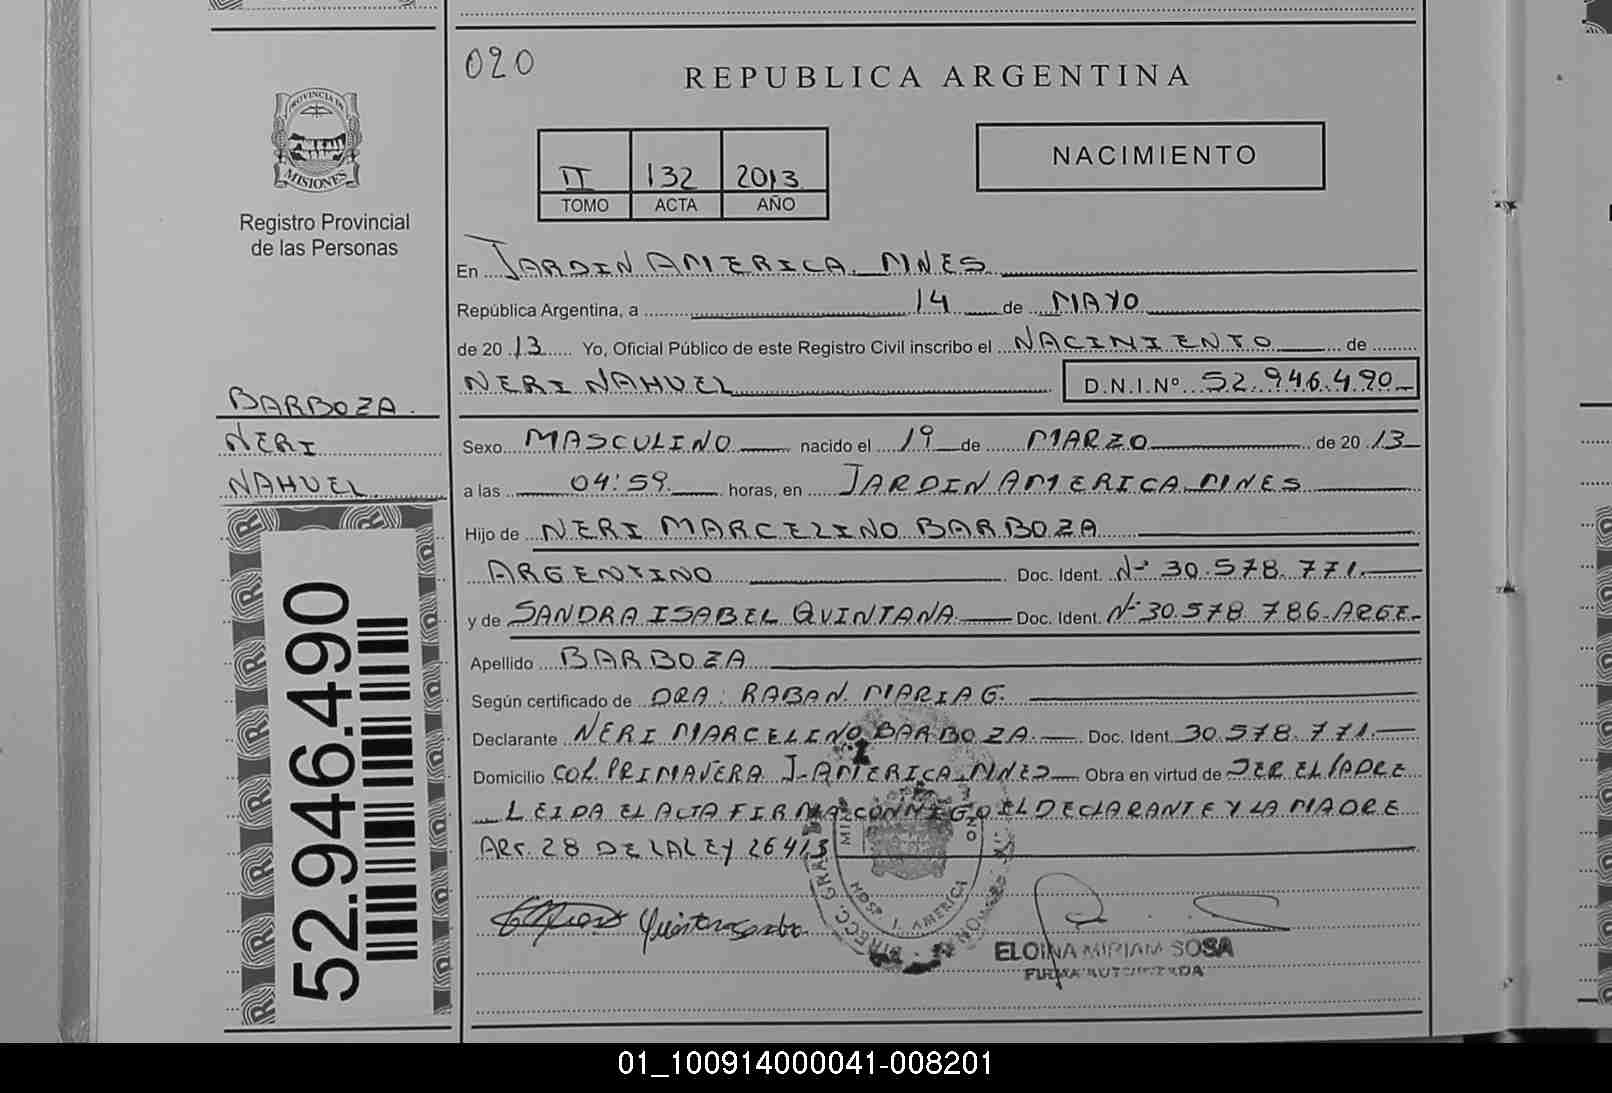 020
REPUBLICA ARGENTINA
PROVINCIA DE
MISIONES
Registro Provincial
de las Personas
II 132 2013
TOMO ACTA AÑO
NACIMIENTO
En JARDIN AMERICA MNES
República Argentina, a 14 de MAYO
de 2013 Yo, Oficial Público de este Registro Civil inscribo el NACIMIENTO de
NERI NAHUEL D.N.I.Nº 52.946.490
BARBOZA
NERI
NAHUEL
52.946.490
Sexo MASCULINO nacido el 19 de MARZO de 2013
a las 04:59 horas, en JARDIN AMERICA MNES
Hijo de NERI MARCELINO BARBOZA
ARGENTINO Doc. Ident. Nº 30.578.771
y de SANDRA ISABEL QUINTANA Doc. Ident. Nº 30.578.786-ARGE-
Apellido BARBOZA
Según certificado de DRA: RABAN MARIA G.
Declarante NERI MARCELINO BARBOZA Doc. Ident. 30.578.771
Domicilio COL. PRIMAVERA J-AMERICA-MNES Obra en virtud de SER EL PADRE
LEIDA EL ACTA FIRMA CONMIGO EL DECLARANTE Y LA MADRE
ART. 28 DE LA LEY 26413
AMERICA
ELOINA MIRIAM SOSA
FIRMA AUTORIZADA
01_100914000041-008201